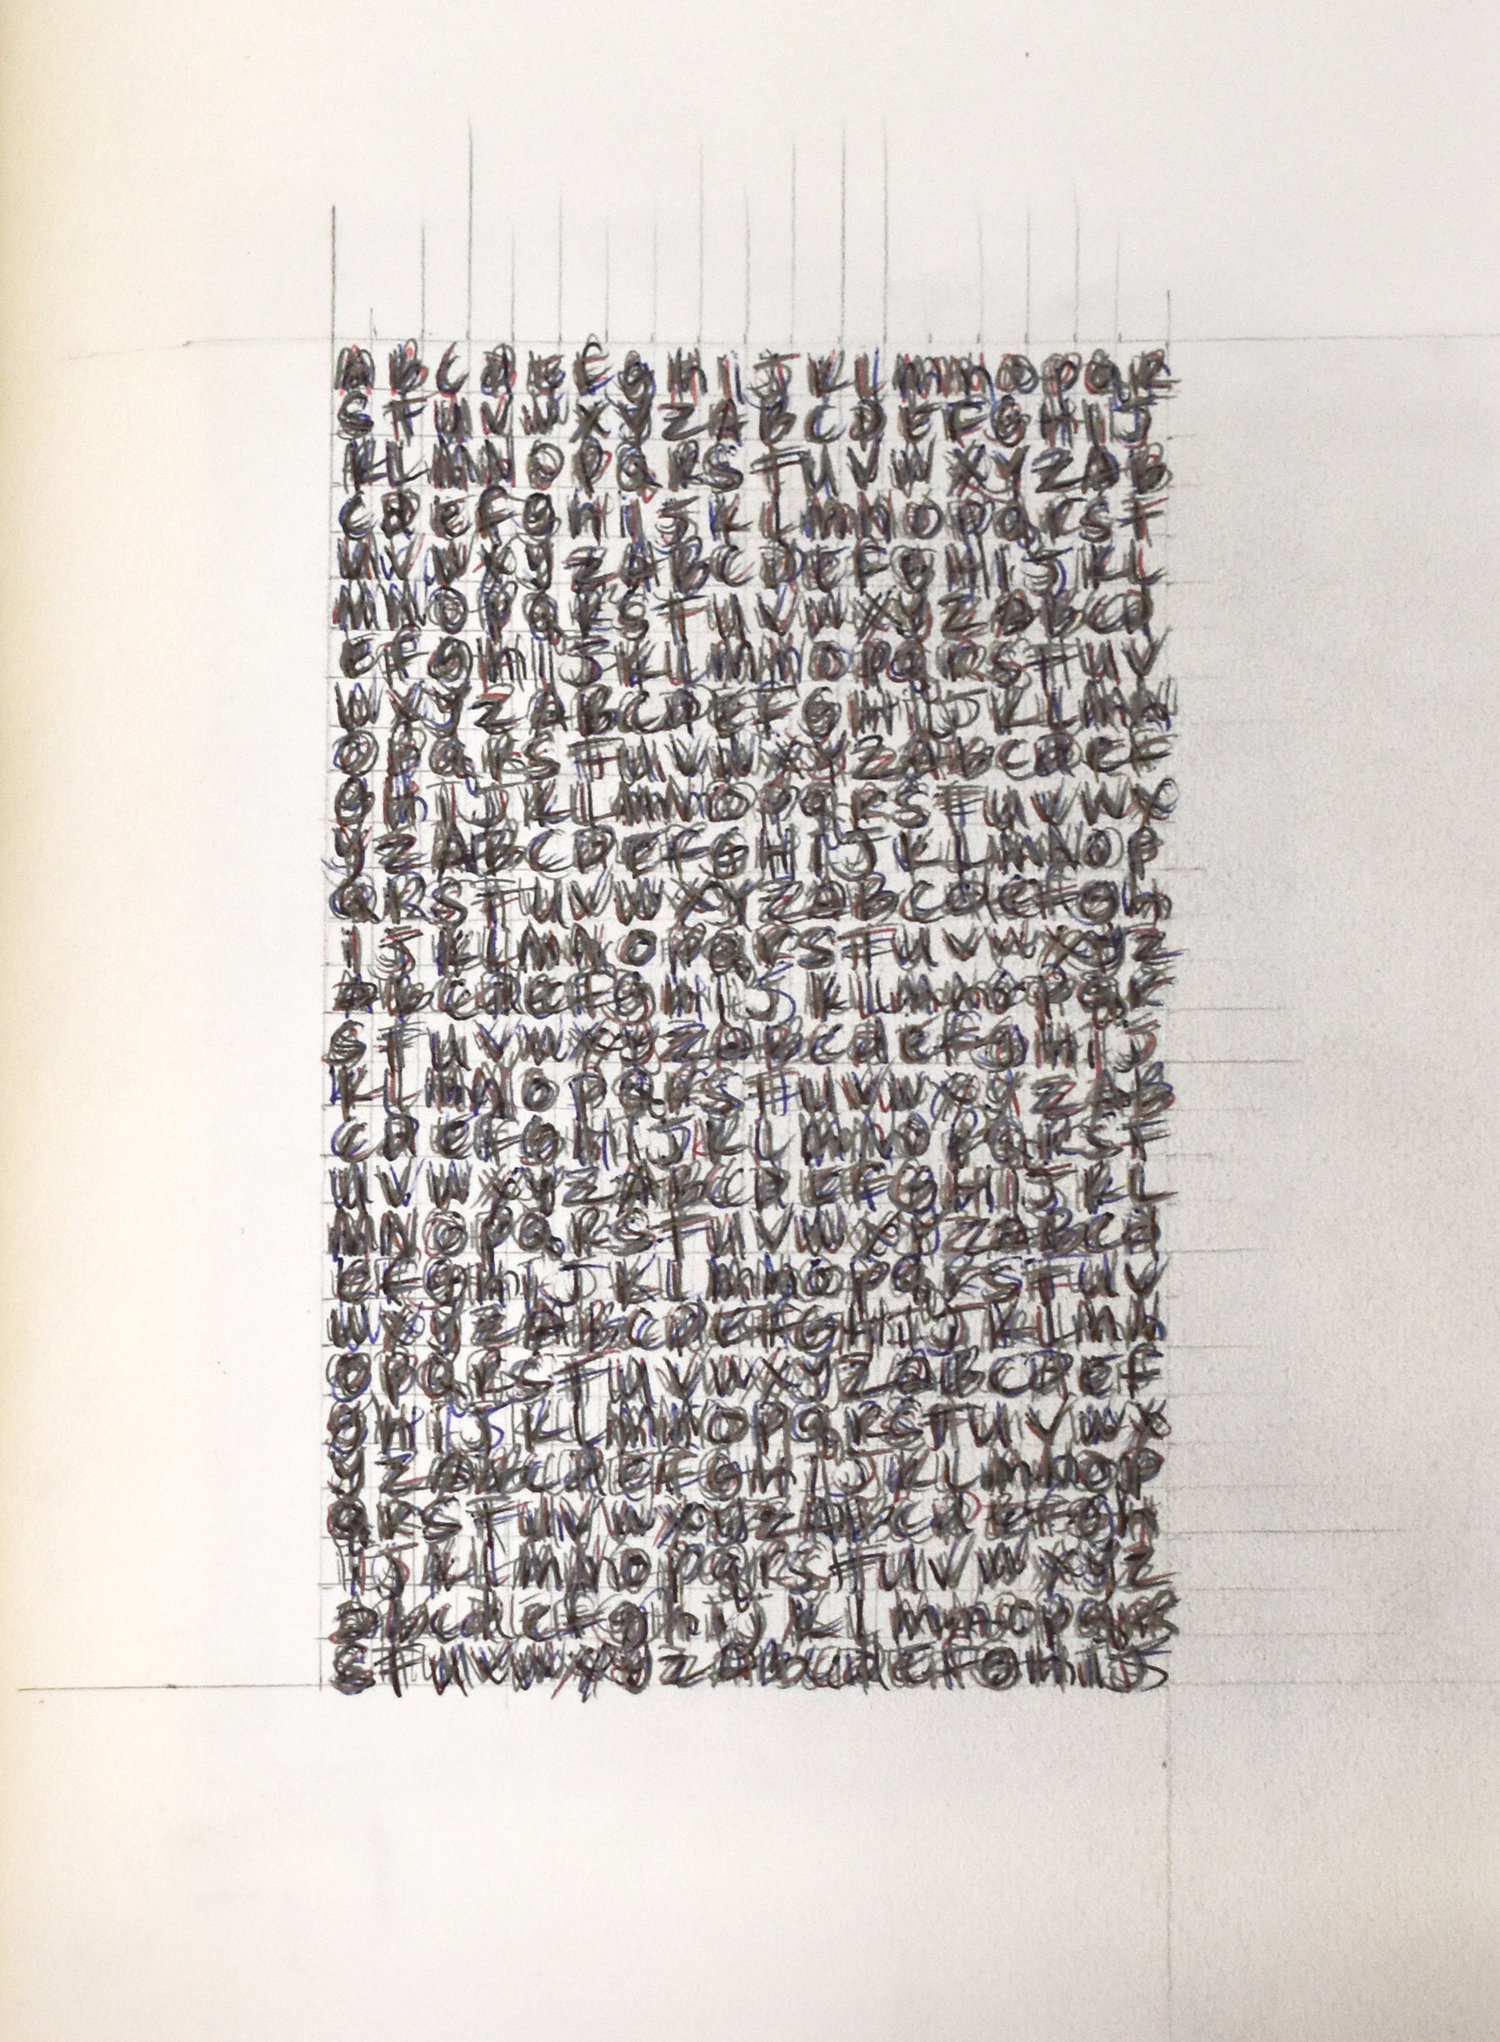 A B C D E F G H I J K L M N O P Q R
S T U V W X Y Z A B C D E F G H I J
K L M N O P Q R S T U V W X Y Z A B
C D E F G H I J K L M N O P Q R S T
U V W X Y Z A B C D E F G H I J K L
M N O P Q R S T U V W X Y Z A B C D
E F G H I J K L M N O P Q R S T U V
W X Y Z A B C D E F G H I J K L M N
O P Q R S T U V W X Y Z A B C D E F
G H I J K L M N O P Q R S T U V W X
Y Z A B C D E F G H I J K L M N O P
Q R S T U V W X Y Z A B C D E F G H
I J K L M N O P Q R S T U V W X Y Z
A B C D E F G H I J K L M N O P Q R
S T U V W X Y Z A B C D E F G H I J
K L M N O P Q R S T U V W X Y Z A B
C D E F G H I J K L M N O P Q R S T
U V W X Y Z A B C D E F G H I J K L
M N O P Q R S T U V W X Y Z A B C D
E F G H I J K L M N O P Q R S T U V
W X Y Z A B C D E F G H I J K L M N
O P Q R S T U V W X Y Z A B C D E F
G H I J K L M N O P Q R S T U V W X
Y Z A B C D E F G H I J K L M N O P
Q R S T U V W X Y Z A B C D E F G H
I J K L M N O P Q R S T U V W X Y Z
A B C D E F G H I J K L M N O P Q R
S T U V W X Y Z A B C D E F G H I J